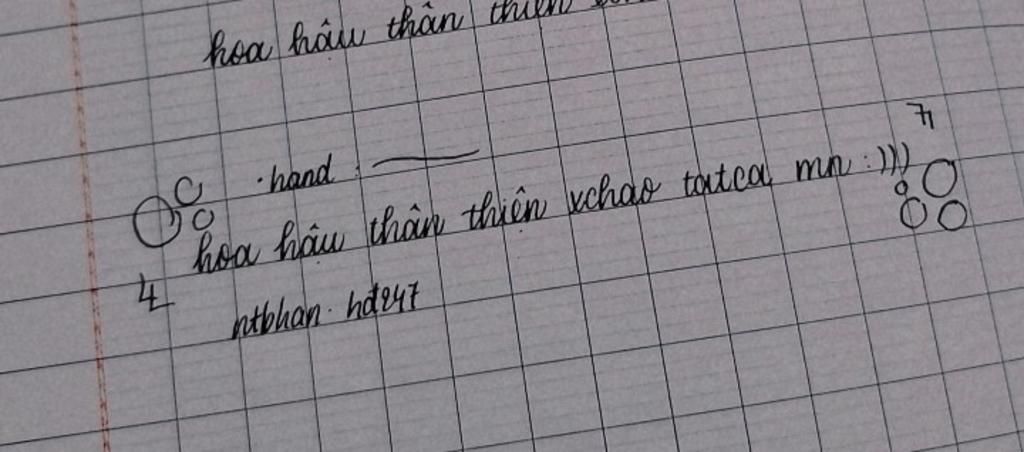 hoa hậu thân thiện
hand :
hoa hậu thân thiện xchao tatca mn :)))
ntbhan. hd247